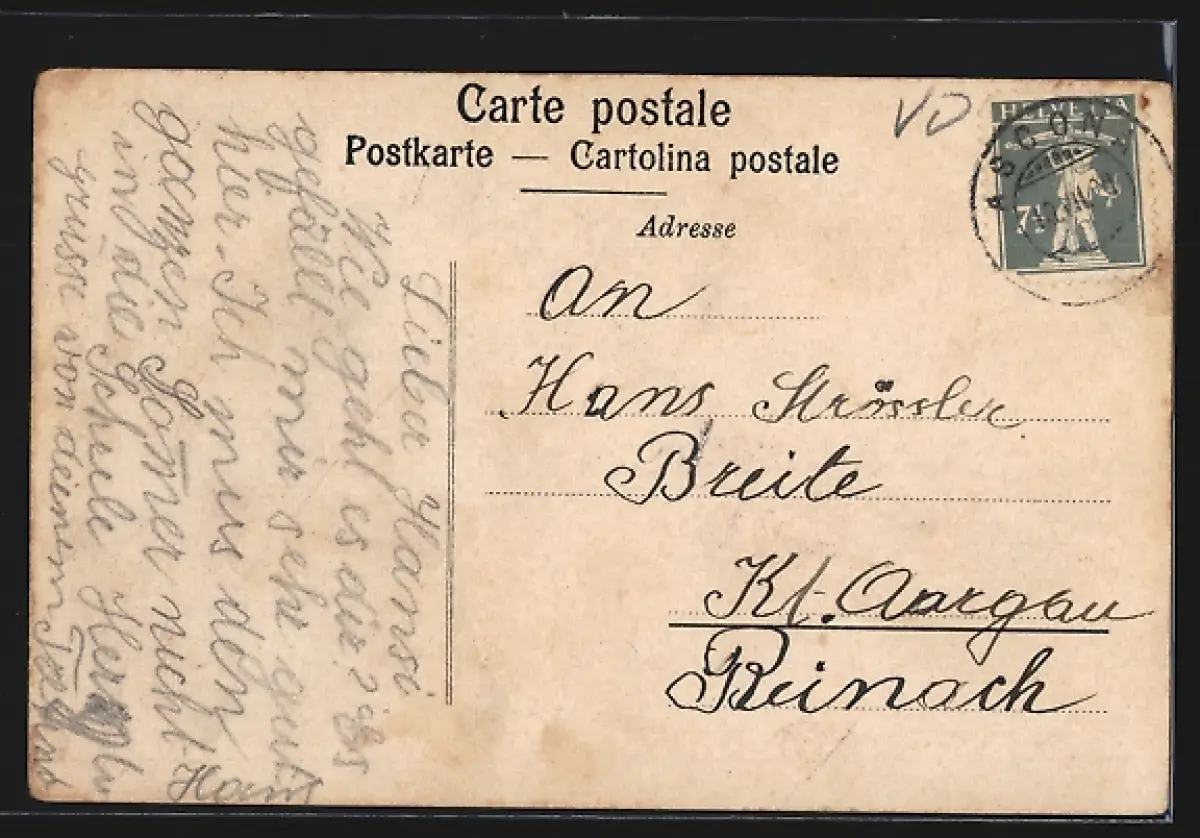 Carte postale
Postkarte — Cartolina postale
Adresse
VD
HELVETIA
7½
ASCONA
An
Hans Strössler
Breite
Kt. Aargau
Reinach
Lieber Hansi
Wie geht es dir? Es
gefällt mir sehr gut
hier. Ich mus den
ganzen Somer nicht
in die Schule Herzlu
grüsse von deinem
Hans